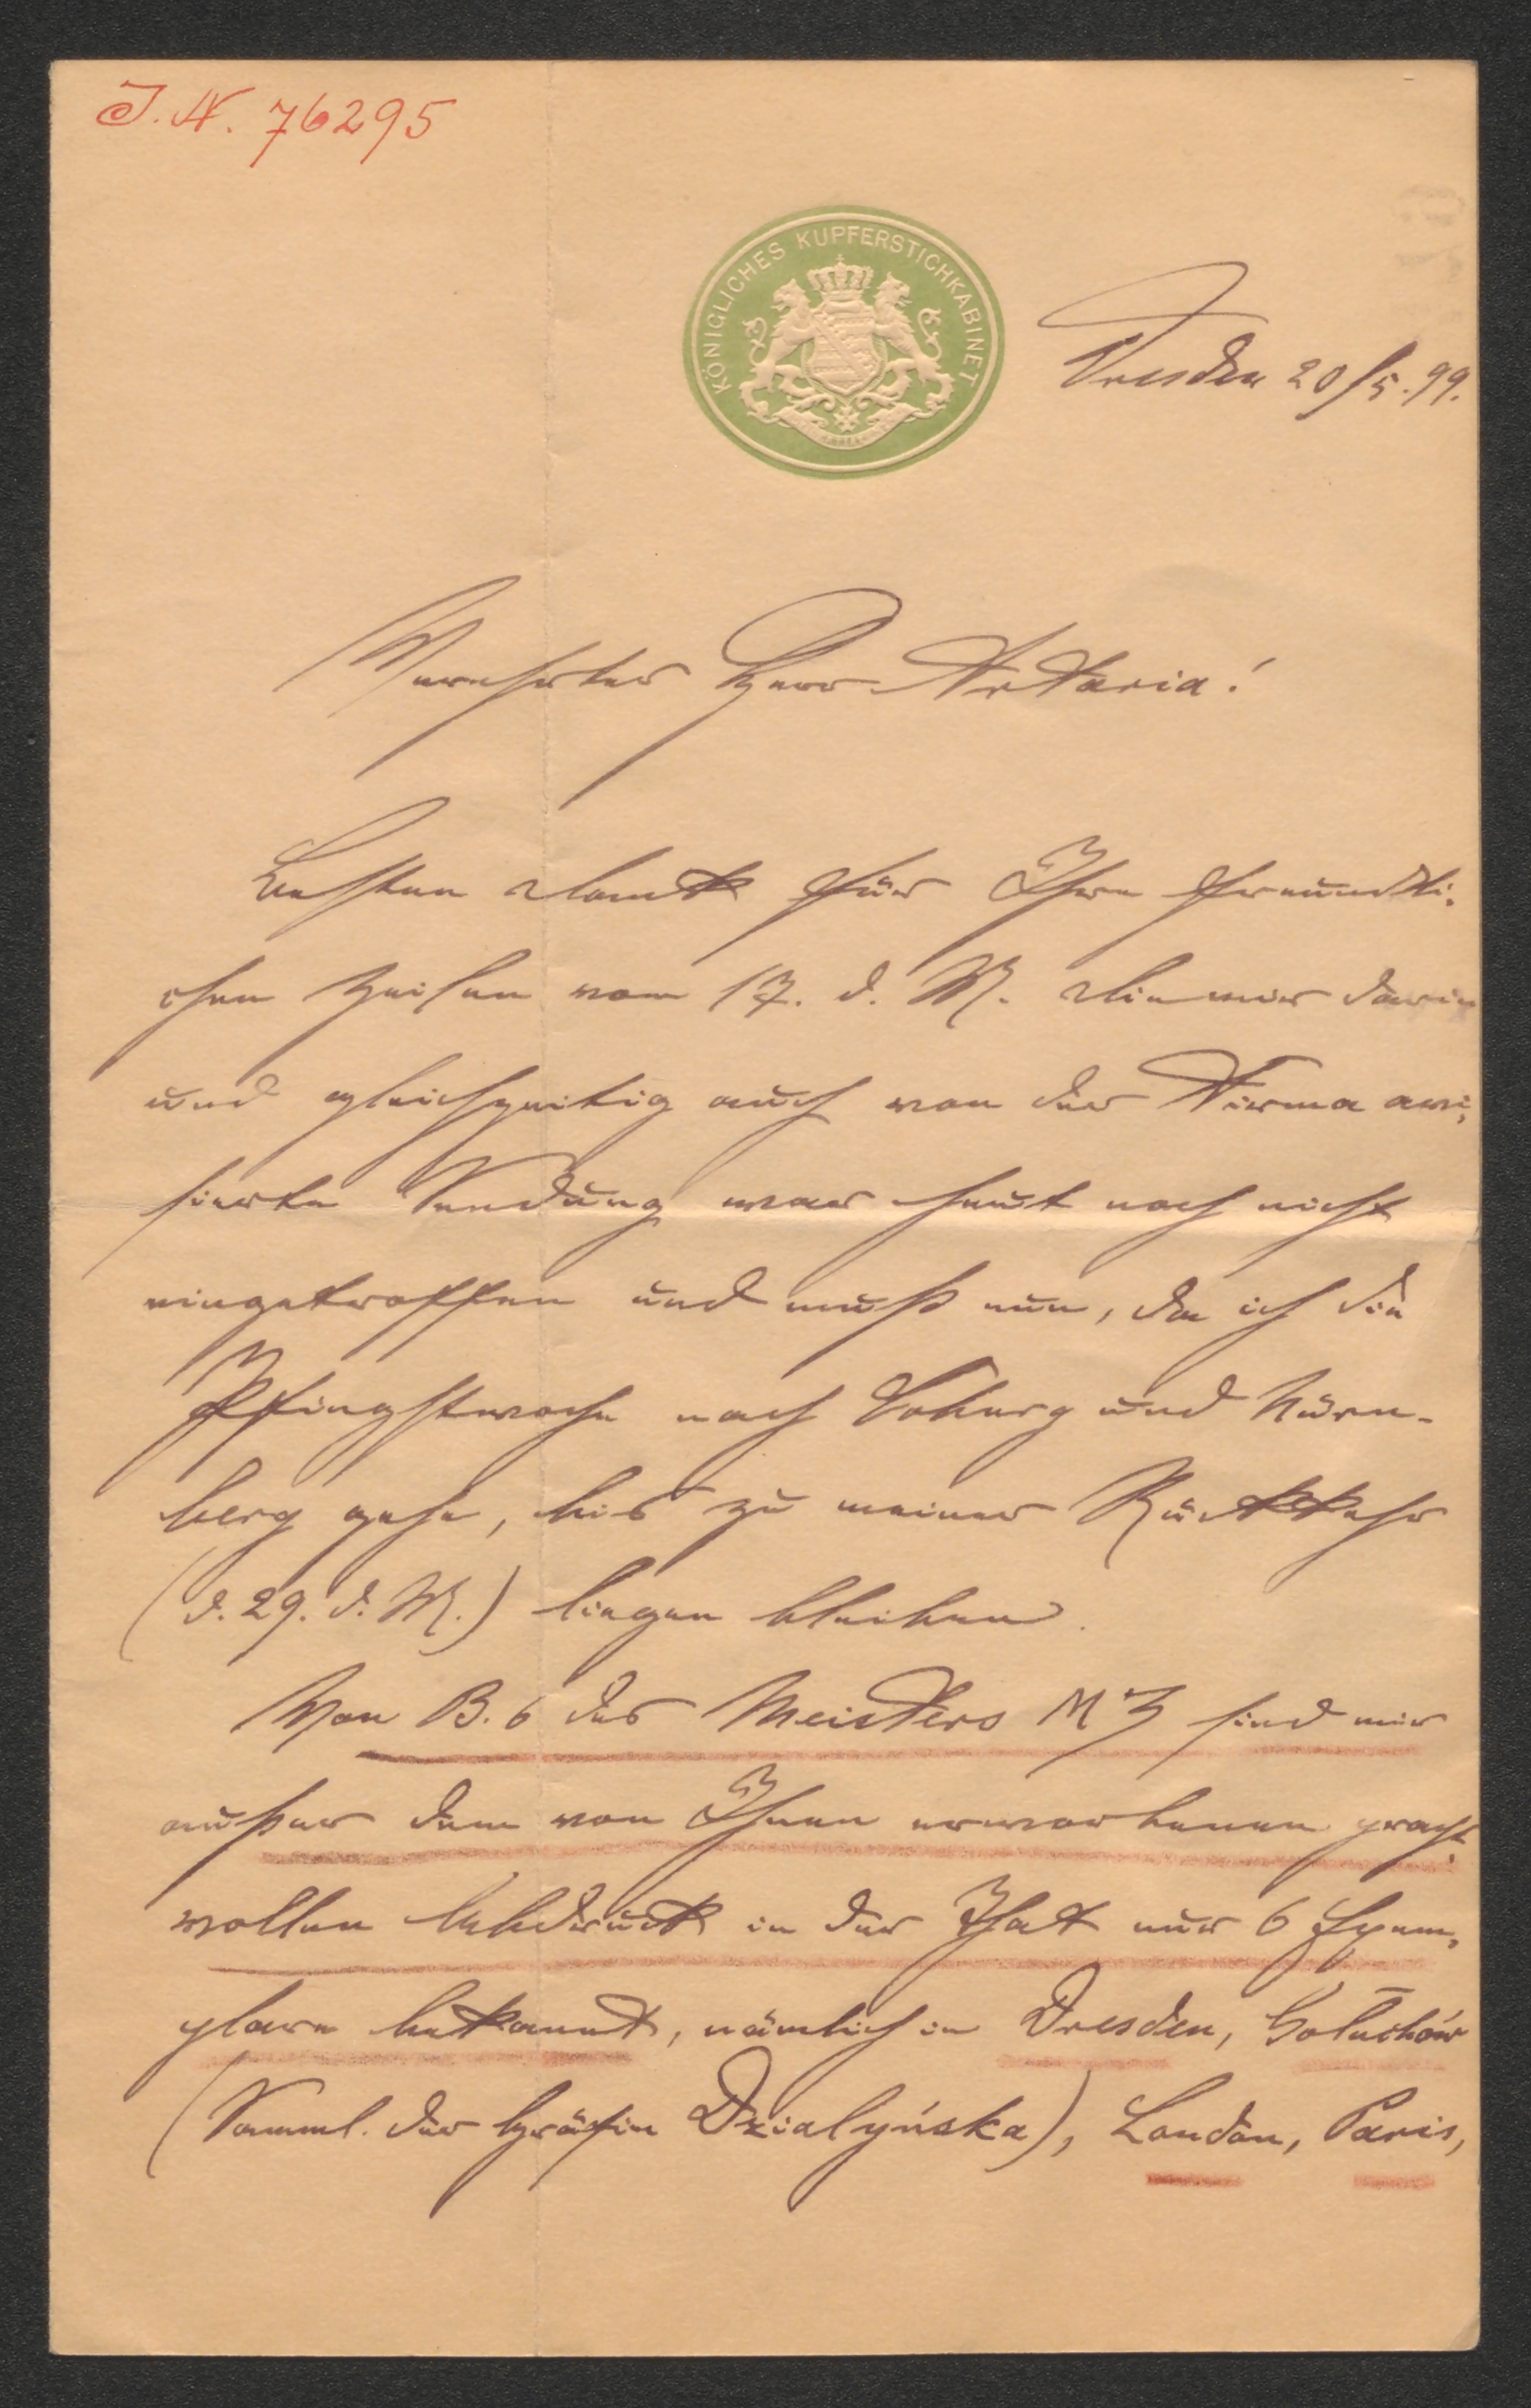 J. N. 76295
KÖNIGLICHES KUPFERSTICHKABINET
Dresden 20/5.99.
Verehrter Herr Artaria!
Besten Dank für Ihre freundli-
chen Zeilen vom 17. d. M. Die mir darin
und gleichzeitig auch von der Firma avi-
sierte Sendung war heut noch nicht
eingetroffen und muß nun, da ich die
Pfingstwoche nach Coburg und Nürn-
berg gehe, bis zu meiner Rückkehr
(d. 29. d. M.) liegen bleiben.
Von B. 6 des Meisters MZ sind mir
außer dem von Ihnen erworbenen pracht-
vollen Abdruck in der That nur 6 Exem-
plare bekannt, nämlich in Dresden, Gołuchów
(Samml. der Gräfin Dzialyńska), London, Paris,